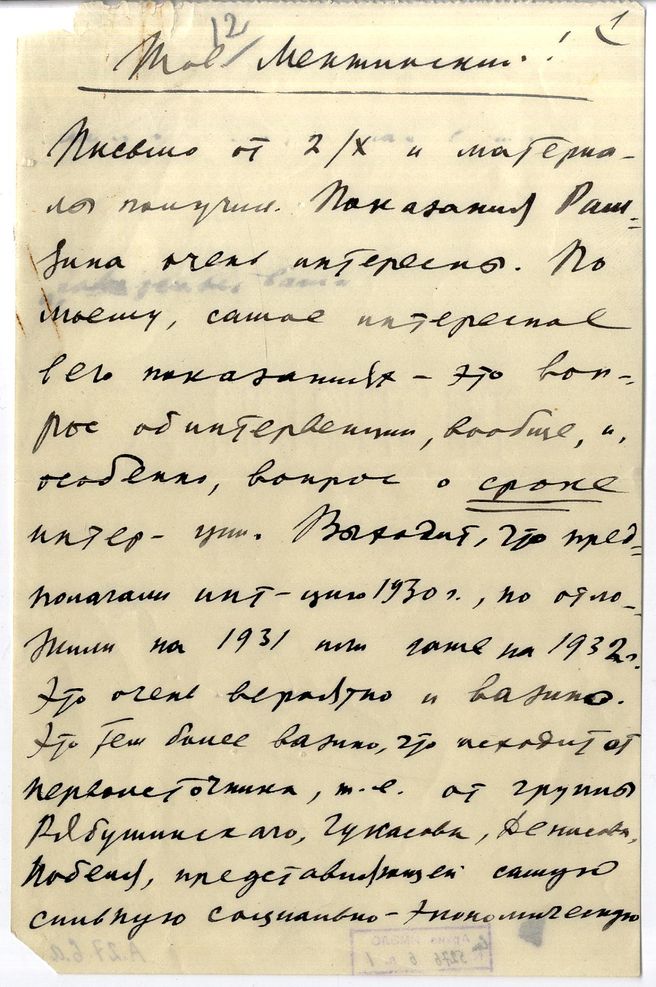 12
1
Тов. Менжинский!
Письмо от 2/X и материа-
лы получил. Показания Рам-
зина очень интересны. По
моему, самое интересное
в его показаниях – это воп-
рос об интервенции, вообще, и,
особенно, вопрос о сроке
интер-ции. Выходит, что пред-
полагали инт-цию 1930 г., но отло-
жили на 1931 или даже на 1932 г.
Это очень вероятно и важно.
Это тем более важно, что исходит от
первоисточника, т.е. от группы
Рябушинского, Гукасова, Денисова,
Нобеля, представляющей самую
сильную социально-экономическую
А.276.а